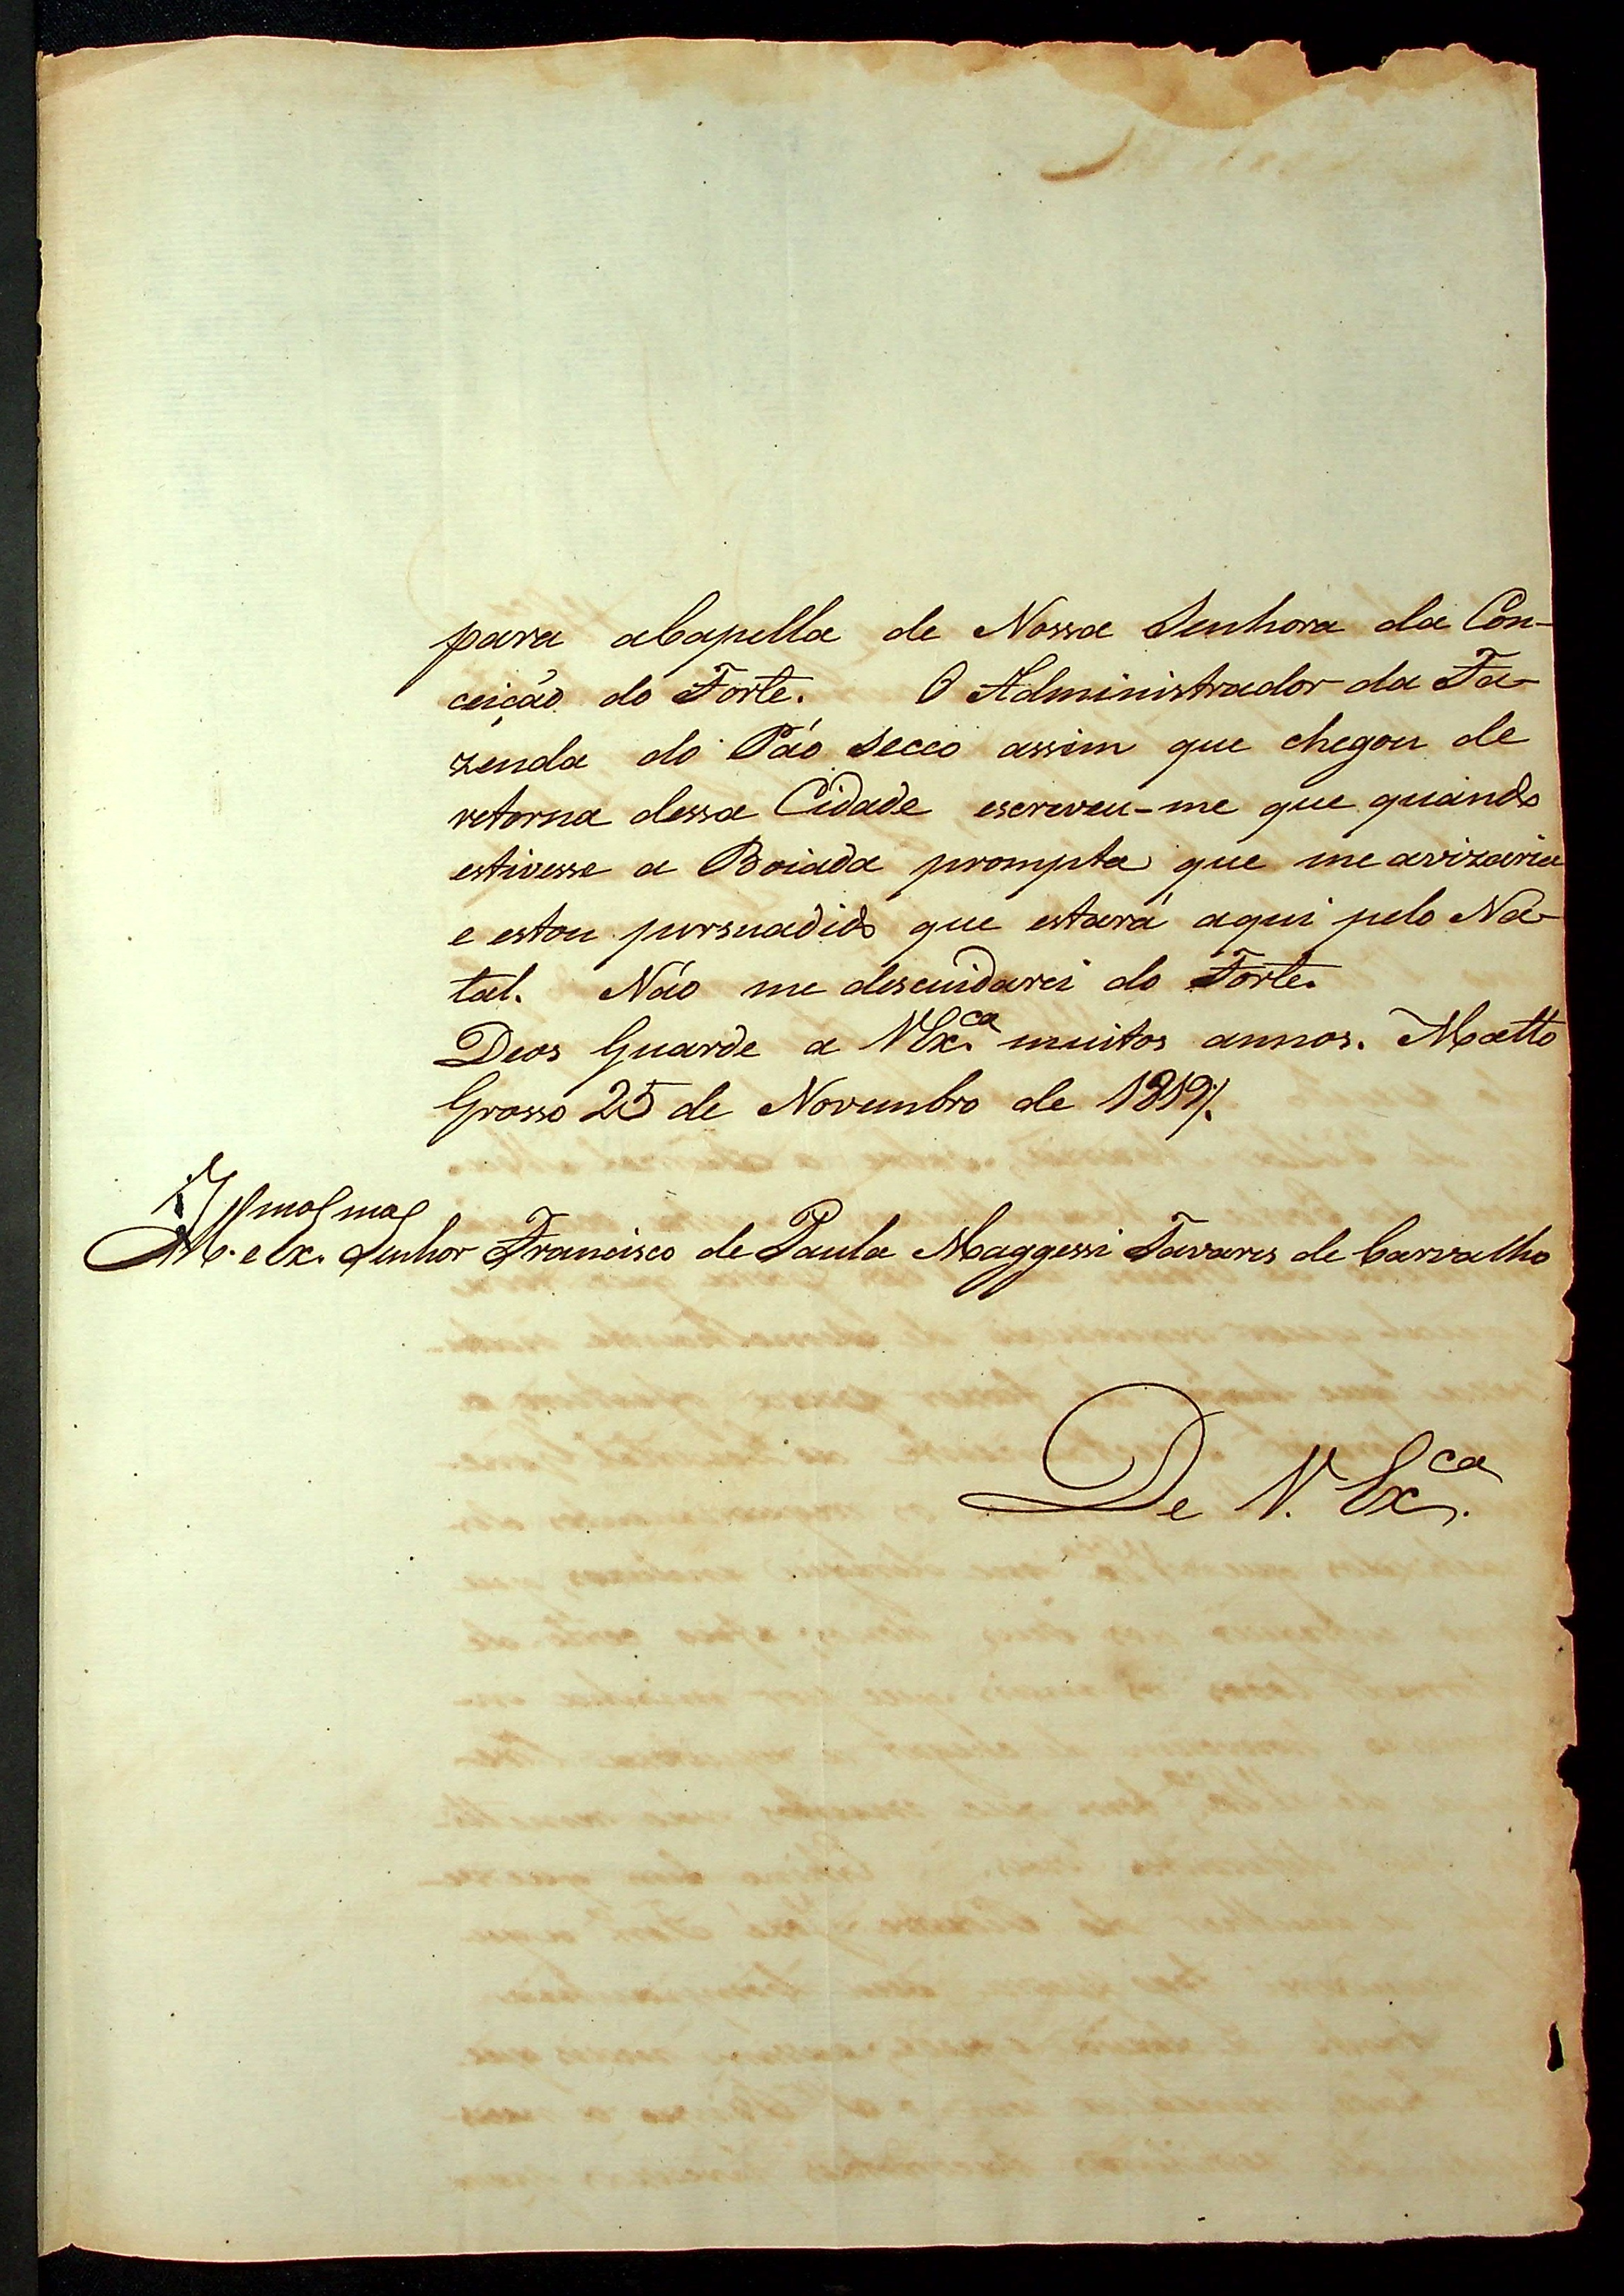 para aCapella de Nossa Senhora da Con-
ceição do Forte. O Administrador da Fa-
zenda do Páo Secco assim que chegou de
retorna dessa Cidade escreveu-me que quando
estivesse a Boiada prompta que me avizaria
e estou persuadido que estará aqui pelo Na-
tal. Não me descuidarei do Forte.
Deos Guarde a VEx.ca muitos annos. Matto
Grosso 25 de Novembro de 1819
Ill.mo e Ex.mo Senhor Francisco de Paula Maggessi Tavares de Carvalho
De V. Ex.ca